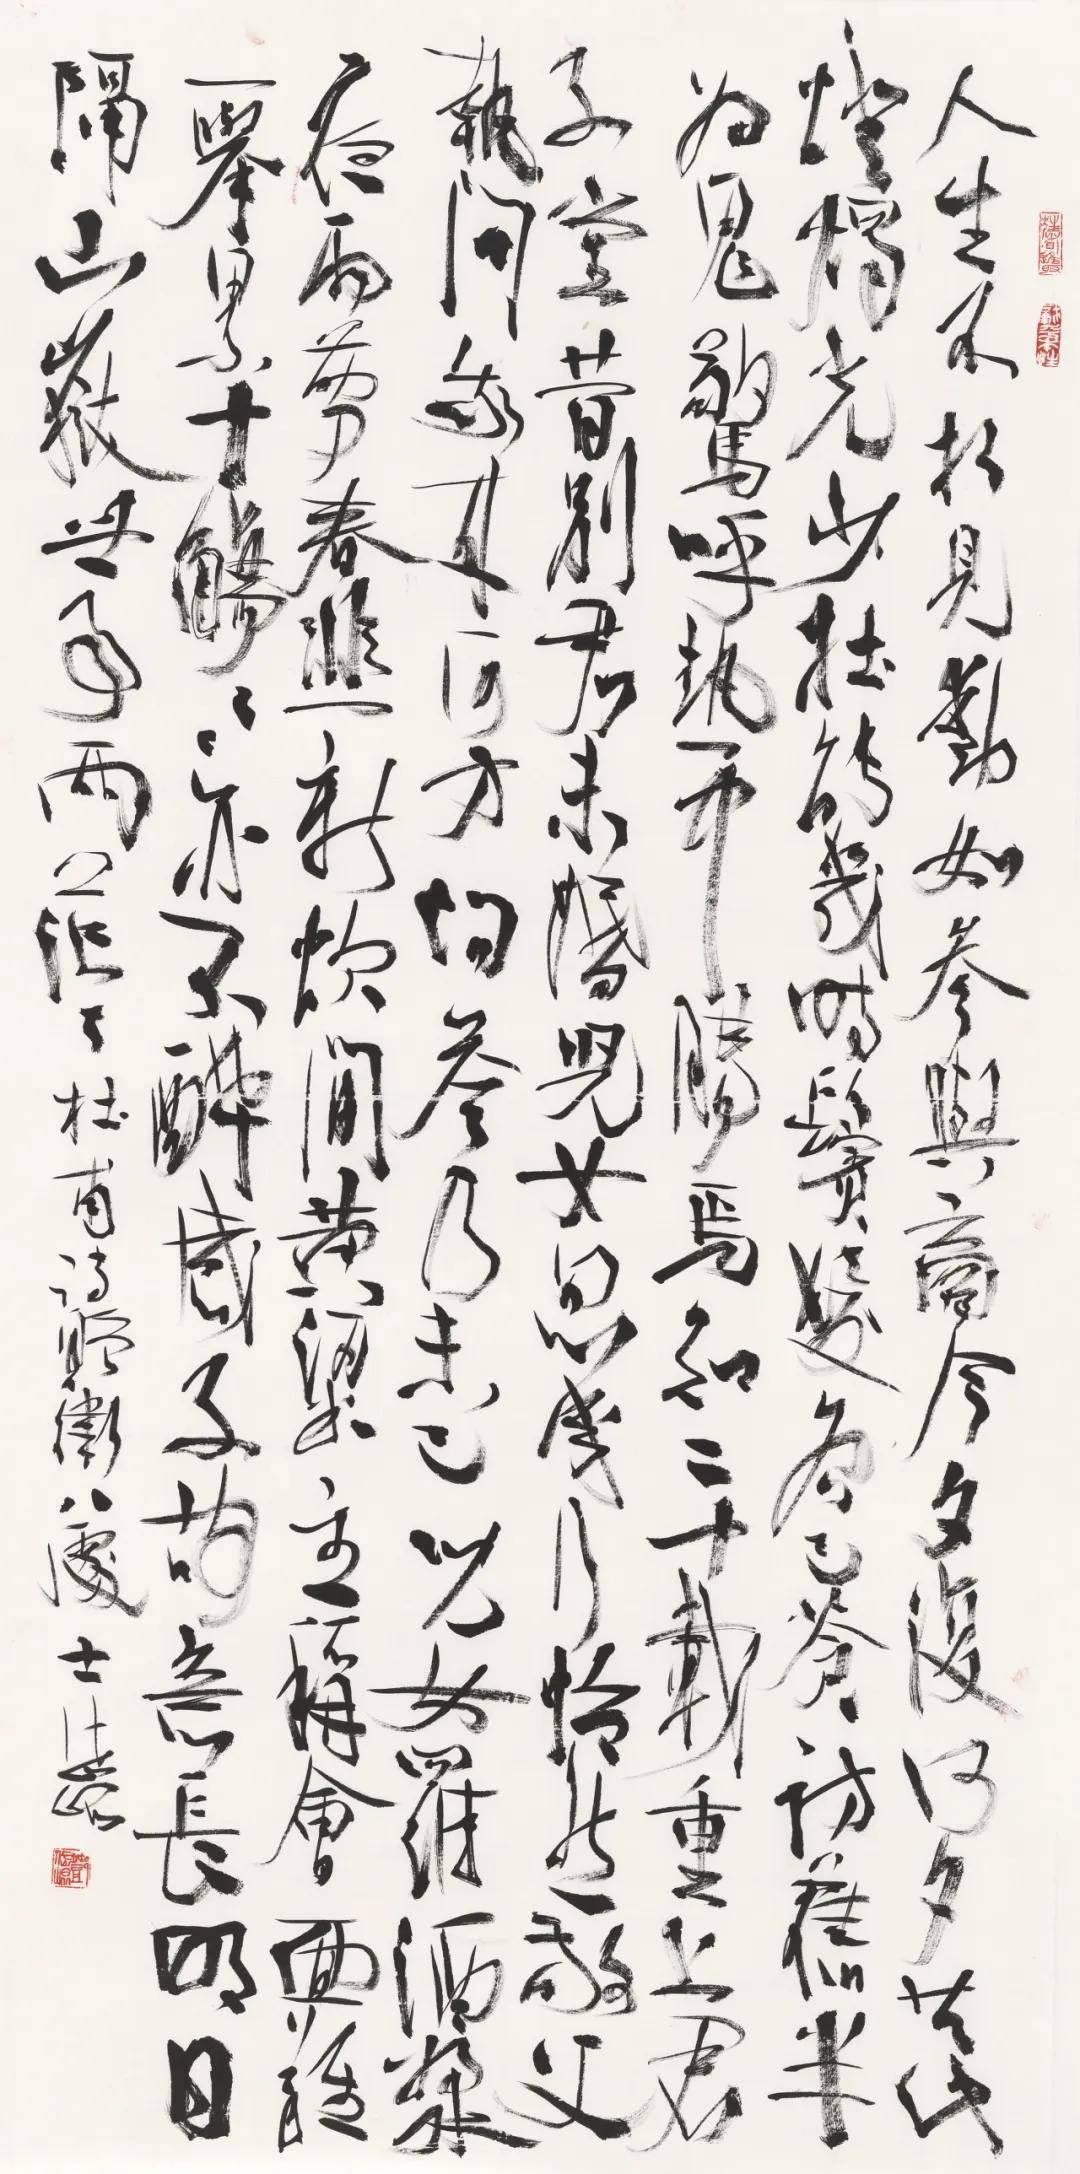 人生不相見動如參與商今夕復何夕共此
燈燭光少壯能幾時鬢髮各已蒼訪舊半
為鬼驚呼熱中腸焉知二十載重上君
子堂昔別君未婚兒女忽成行怡然敬父
執問我來何方問答乃未已兒女羅酒漿
夜雨剪春韭新炊間黃粱主稱會面難
一舉累十觴〻〻亦不醉感子故意長明日
隔山嶽世事兩茫〻杜甫詩贈衛八處士